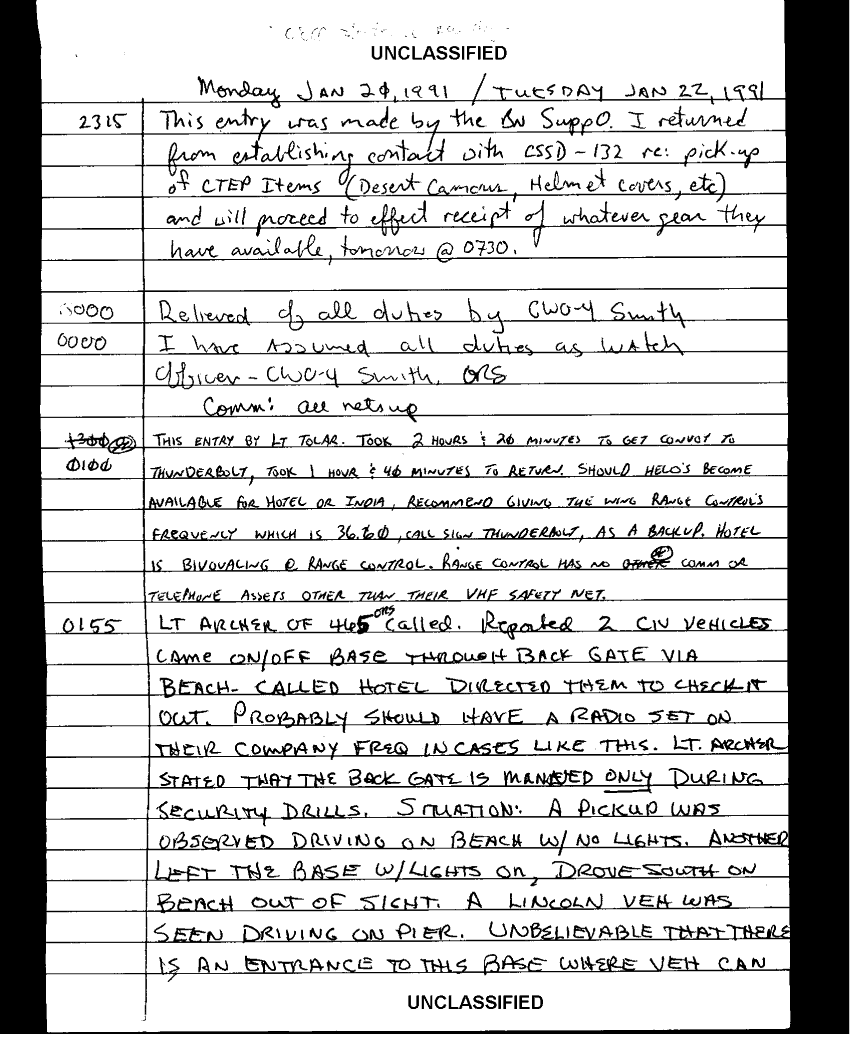 UNCLASSIFIED
Monday JAN 2φ, 1991 / TUESDAY JAN 22, 1991
2315 This entry was made by the BN SuppO. I returned
from establishing contact with CSSD-132 re: pick-up
of CTEP Items (Desert Camous, Helmet covers, etc)
and will proceed to effect receipt of whatever gear they
have available, tomorrow @ 0730.
0000 Relieved of all duties by CWO-4 Smith
0000 I have Assumed all duties as Watch
Officer - CWO-4 Smith, ORS
Comm: all nets up
THIS ENTRY BY LT TOLAR. TOOK 2 HOURS & 20 MINUTES TO GET CONVOY TO
0100 THUNDERBOLT, TOOK 1 HOUR & 40 MINUTES TO RETURN. SHOULD HELO'S BECOME
AVAILABLE FOR HOTEL OR INDIA, RECOMMEND GIVING THE WING RANGE CONTROL'S
FREQUENCY WHICH IS 36.60, CALL SIGN THUNDERBOLT, AS A BACKUP. HOTEL
IS BIVOUACING @ RANGE CONTROL. RANGE CONTROL HAS NO COMM OR
TELEPHONE ASSETS OTHER THAN THEIR VHF SAFETY NET.
0155 LT ARCHER OF 465 ORS called. Reported 2 CIV VEHICLES
CAME ON/OFF BASE THROUGH BACK GATE VIA
BEACH- CALLED HOTEL DIRECTED THEM TO CHECK IT
OUT. PROBABLY SHOULD HAVE A RADIO SET ON
THEIR COMPANY FREQ IN CASES LIKE THIS. LT. ARCHER
STATED THAT THE BACK GATE IS MANNED ONLY DURING
SECURITY DRILLS. SITUATION: A PICKUP WAS
OBSERVED DRIVING ON BEACH W/ NO LIGHTS. ANOTHER
LEFT THE BASE W/LIGHTS ON, DROVE SOUTH ON
BEACH OUT OF SIGHT. A LINCOLN VEH WAS
SEEN DRIVING ON PIER. UNBELIEVABLE THAT THERE
IS AN ENTRANCE TO THIS BASE WHERE VEH CAN
UNCLASSIFIED